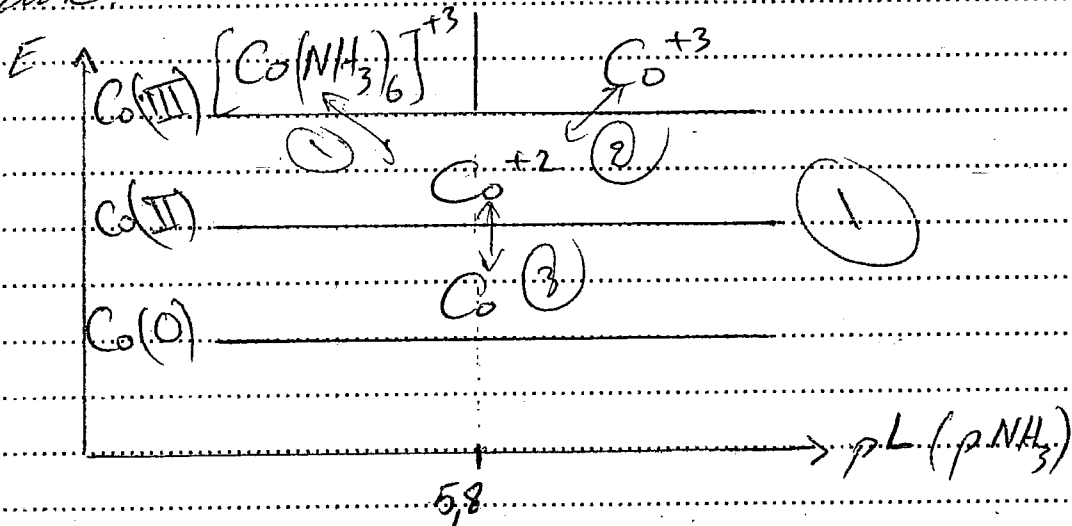 E
Co(III) [Co(NH3)6]+3 Co+3
1 2
Co+2
Co(II) 1
Co 3
Co(0)
pL (pNH3)
5,8